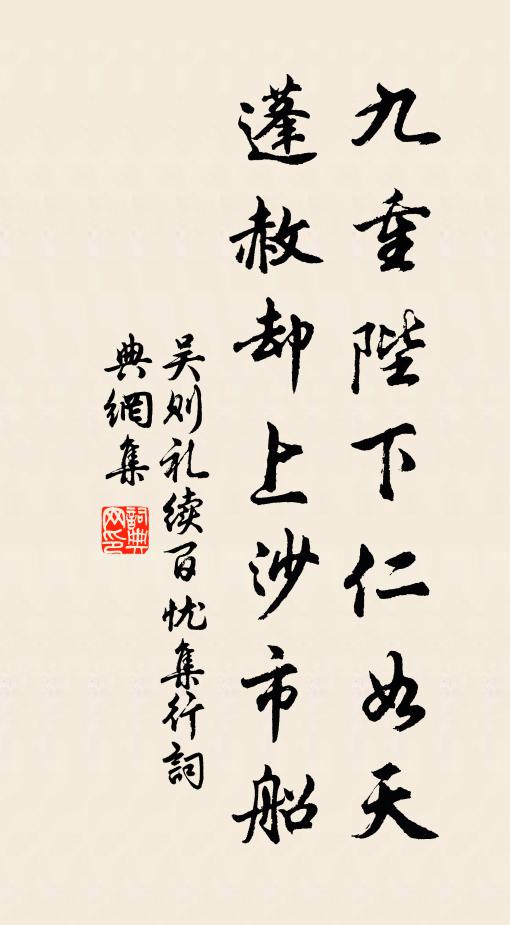 九重陛下仁如天
蓬赦却上沙市船
吴则礼续百忧集行词
典網集
詞典
网印